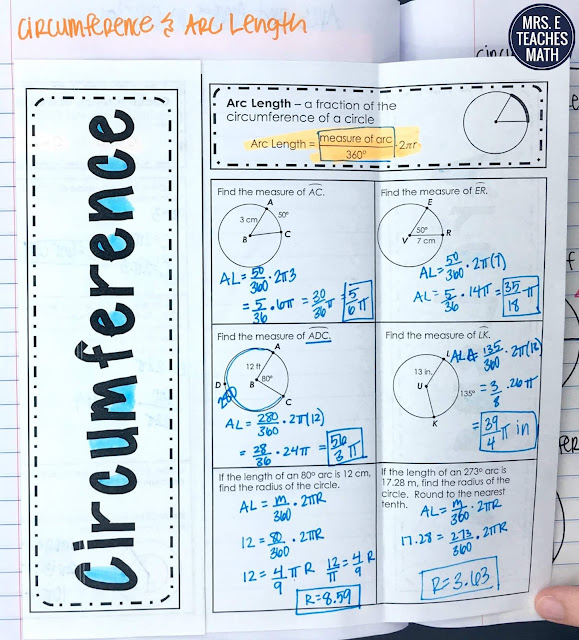 Circumference & Arc Length
MRS. E
TEACHES
MATH
Circumference
Arc Length – a fraction of the
circumference of a circle
Arc Length = measure of arc/360° · 2πr
Find the measure of AC.
A
3 cm
50°
B
C
AL = 50/360 · 2π3
= 5/36 · 6π = 30/36 π = 5/6 π
Find the measure of ER.
E
50°
V
7 cm
R
AL = 50/360 · 2π(7)
AL = 5/36 · 14π = 35/18 π
Find the measure of ADC.
A
12 ft
D
B
80°
280
C
AL = 280/360 · 2π(12)
= 28/36 · 24π = 56/3 π
Find the measure of LK.
L
13 in.
U
135°
K
AL = 135/360 · 2π(13)
= 3/8 · 26π
= 39/4 π in
If the length of an 80° arc is 12 cm,
find the radius of the circle.
AL = m/360 · 2πR
12 = 80/360 · 2πR
12 = 4/9 π R 12/π = 4/9 R
R = 8.59
If the length of an 273° arc is
17.28 m, find the radius of the
circle. Round to the nearest
tenth.
AL = m/360 · 2πR
17.28 = 273/360 · 2πR
R = 3.63